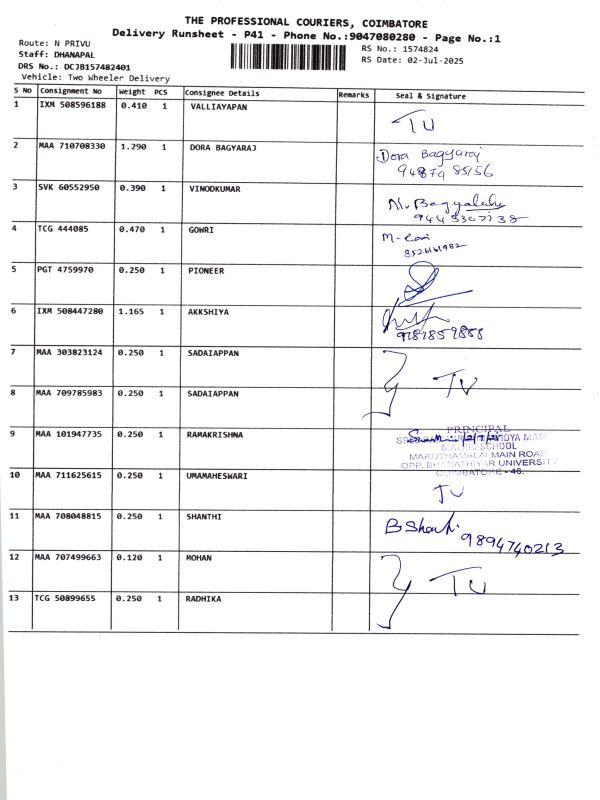 THE PROFESSIONAL COURIERS, COIMBATORE
Delivery Runsheet - P41 - Phone No.:9047080280 - Page No.:1
Route: N PRIVU
RS No.: 1574824
Staff: DHANAPAL
RS Date: 02-Jul-2025
DRS No.: DCJB157482401
Vehicle: Two Wheeler Delivery
S No Consignment No Weight PCS Consignee Details Remarks Seal & Signature
1 IXM 508596188 0.410 1 VALLIAYAPAN
TU
2 MAA 710708330 1.290 1 DORA BAGYARAJ Dora Bagyaraj
94879 85156
3 SVK 60552950 0.390 1 VINODKUMAR
4 TCG 444085 0.470 1 GOWRI
5 PGT 4759970 0.250 1 PIONEER
6 IXM 508447280 1.165 1 AKKSHIYA
7 MAA 303823124 0.250 1 SADAIAPPAN
TU
8 MAA 709785983 0.250 1 SADAIAPPAN
PRINCIPAL
9 MAA 101947735 0.250 1 RAMAKRISHNA
SCHOOL
MARUTHAMALAI MAIN ROAD
OPP. BHARATHIYAR UNIVERSITY
COIMBATORE - 46.
10 MAA 711625615 0.250 1 UMAMAHESWARI
TU
11 MAA 708048815 0.250 1 SHANTHI
9894740213
12 MAA 707499663 0.120 1 MOHAN
TU
13 TCG 50899655 0.250 1 RADHIKA